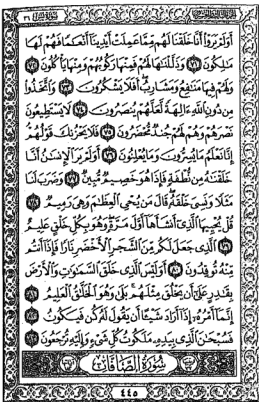 أَوَلَمْ يَرَوْا۟ أَنَّا خَلَقْنَا لَهُم مِّمَّا عَمِلَتْ أَيْدِينَآ أَنْعَـٰمًا فَهُمْ لَهَا
مَـٰلِكُونَ ٧١ وَذَلَّلْنَـٰهَا لَهُمْ فَمِنْهَا رَكُوبُهُمْ وَمِنْهَا يَأْكُلُونَ ٧٢
وَلَهُمْ فِيهَا مَنَـٰفِعُ وَمَشَارِبُ أَفَلَا يَشْكُرُونَ ٧٣ وَٱتَّخَذُوا۟
مِن دُونِ ٱللَّهِ ءَالِهَةً لَّعَلَّهُمْ يُنصَرُونَ ٧٤ لَا يَسْتَطِيعُونَ
نَصْرَهُمْ وَهُمْ لَهُمْ جُندٌ مُّحْضَرُونَ ٧٥ فَلَا يَحْزُنكَ قَوْلُهُمْ
إِنَّا نَعْلَمُ مَا يُسِرُّونَ وَمَا يُعْلِنُونَ ٧٦ أَوَلَمْ يَرَ ٱلْإِنسَـٰنُ أَنَّا
خَلَقْنَـٰهُ مِن نُّطْفَةٍ فَإِذَا هُوَ خَصِيمٌ مُّبِينٌ ٧٧ وَضَرَبَ لَنَا
مَثَلًا وَنَسِىَ خَلْقَهُۥ قَالَ مَن يُحْىِ ٱلْعِظَـٰمَ وَهِىَ رَمِيمٌ ٧٨
قُلْ يُحْيِيهَا ٱلَّذِىٓ أَنشَأَهَآ أَوَّلَ مَرَّةٍ وَهُوَ بِكُلِّ خَلْقٍ عَلِيمٌ
٧٩ ٱلَّذِى جَعَلَ لَكُم مِّنَ ٱلشَّجَرِ ٱلْأَخْضَرِ نَارًا فَإِذَآ أَنتُم
مِّنْهُ تُوقِدُونَ ٨٠ أَوَلَيْسَ ٱلَّذِى خَلَقَ ٱلسَّمَـٰوَٰتِ وَٱلْأَرْضَ
بِقَـٰدِرٍ عَلَىٰٓ أَن يَخْلُقَ مِثْلَهُم بَلَىٰ وَهُوَ ٱلْخَلَّـٰقُ ٱلْعَلِيمُ ٨١
إِنَّمَآ أَمْرُهُۥٓ إِذَآ أَرَادَ شَيْـًٔا أَن يَقُولَ لَهُۥ كُن فَيَكُونُ ٨٢
فَسُبْحَـٰنَ ٱلَّذِى بِيَدِهِۦ مَلَكُوتُ كُلِّ شَىْءٍ وَإِلَيْهِ تُرْجَعُونَ ٨٣
سُورَةُ ٱلصَّافَّاتِ
٤٤٥